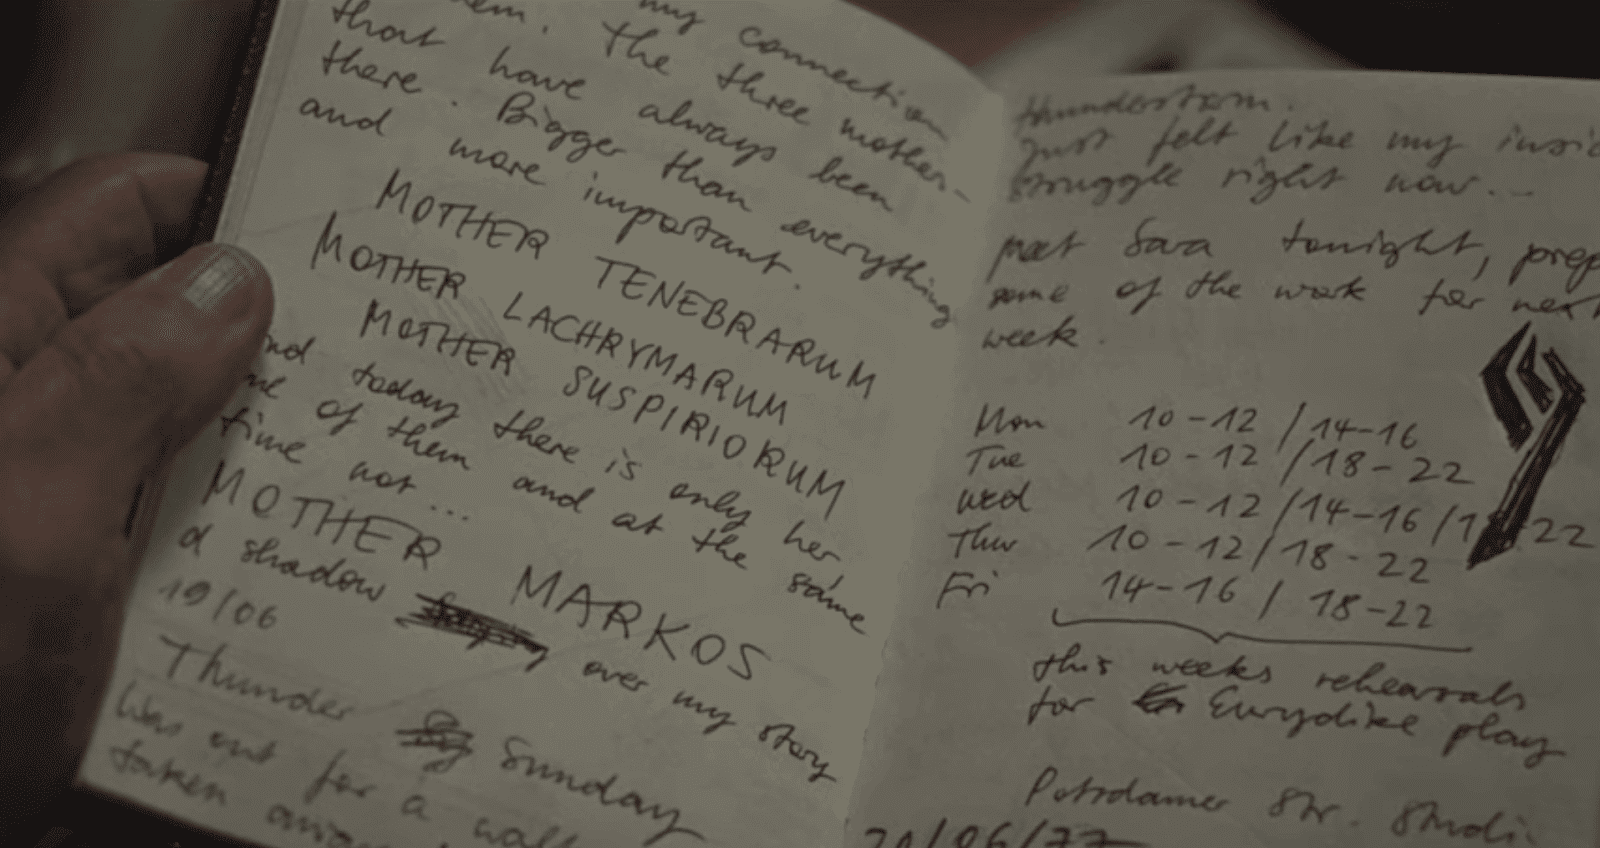 my connection
em. The three mother-
that have always been
there. Bigger than everything
and more important.
MOTHER TENEBRARUM
MOTHER LACHRYMARUM
MOTHER SUSPIRIORUM
nd today there is only her
ne of them and at the same
time not...
MOTHER MARKOS
a shadow over my story
19/06
Thunder Sunday
Was out for a walk
taken
thunderstorm.
just felt like my insid
struggle right now...
meet Sara tonight, prep
some of the work for next
week.
Mon 10-12 / 14-16
Tue 10-12 / 18-22
Wed 10-12 / 14-16 / 18-22
Thur 10-12 / 18-22
Fri 14-16 / 18-22
this weeks rehearsals
for Eurydike play
Potsdamer Str. Studi
20/06/77